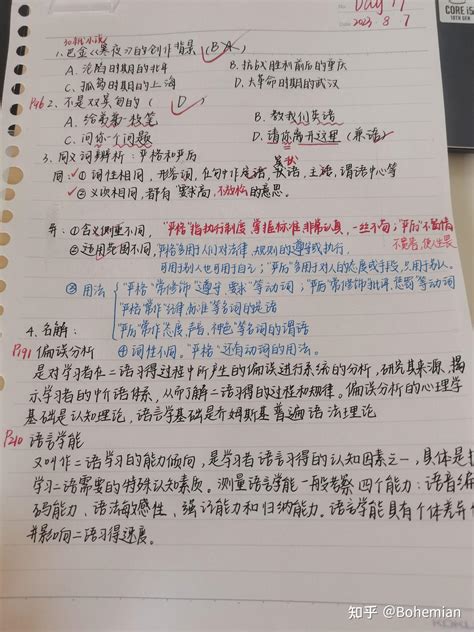 Day 17
2023. 8. 7
CORE i5
10TH GEN
1. 巴金《寒夜》的创作背景 (B A)
A. 沦陷时期的北平 B. 抗战胜利前后的重庆
C. 孤岛时期的上海 D. 大革命时期的武汉
P96 2. 不是双宾句的 ( D )
A. 给我第一枝笔 B. 教我们英语
C. 问你一个问题 D. 请你离开这里 (兼语)
3. 同义词辨析: 严格和严厉
同: ① 词性相同, 形容词, 在句中作定语, 状语, 主语, 谓语中心等
② 义项相同, 都有 要求高, 不放松的意思.
异: ① 含义侧重不同, "严格"指执行制度, 掌握标准 非常认真, 一丝不苟; "严厉"不留情
不宽容, 使人生畏
② 适用范围不同, "严格"多用于人们对法律, 规则的遵守或执行,
可用于别人也可用于自己; "严厉"多用于对人的态度或手段, 只用于别人.
③ 用法 "严格"常修饰"遵守 要求"等动词; "严厉"常修饰"批评, 惩罚"等动词
"严格"常作"纪律, 标准"等名词的定语
"严厉"常作"态度, 声音, 神色"等名词的谓语
4. 名解: ④ 词性不同, "严格"还有动词的用法.
P191 偏误分析
是对学习者在二语习得过程中所产生的偏误进行系统的分析, 研究其来源, 揭
示学习者的中介语体系, 从而了解二语习得的过程和规律. 偏误分析的心理学
基础是认知理论, 语言学基础是乔姆斯基普遍语法理论.
P210 语言学能
又叫作二语学习的能力倾向, 是学习者语言习得的认知因素之一, 具体是指
学习二语需要的特殊认知素质. 测量语言学能一般考察四个能力: 语音编
码能力、语法敏感性、强记能力和归纳能力. 语言学能具有个体差异
并影响二语习得速度.
知乎 @Bohemian